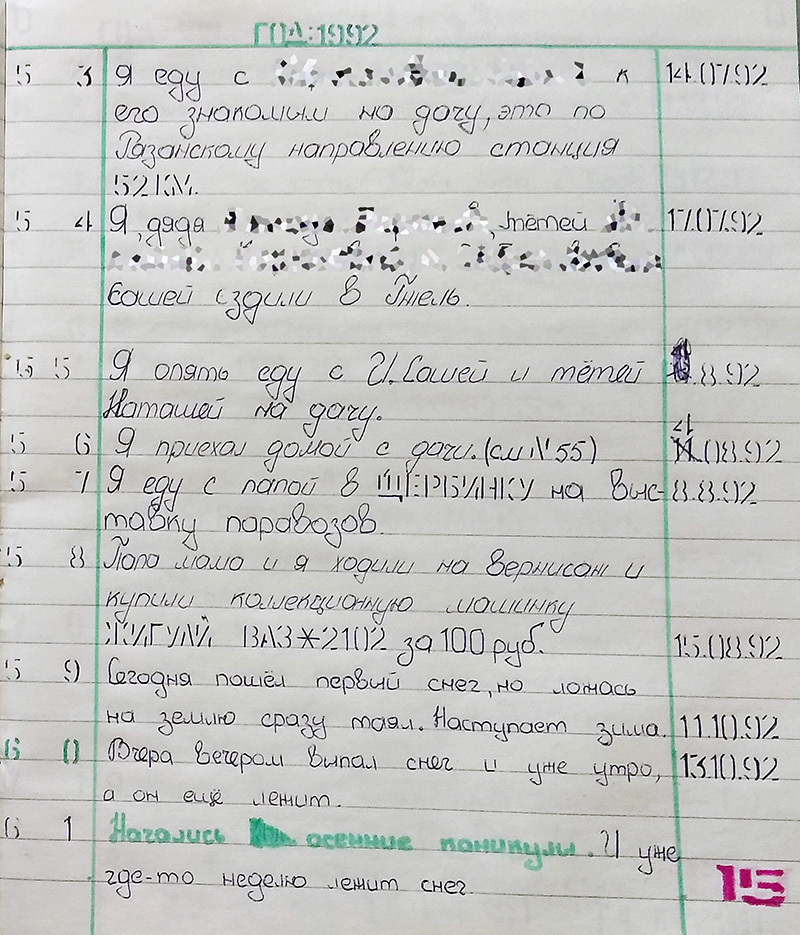 ГОД:1992
53 Я еду с к 14.07.92
его знакомым на дачу, это по
Разанскому направлению станция
52 КМ.
54 Я, дядя , тётей 17.07.92
Сашей ездили в Гжель.
55 Я опять еду с И.Сашей и тётей .8.92
Наташей на дачу.
56 Я приехал домой с дачи. (см №55) 21.08.92
57 Я еду с папой в ЩЕРБИНКУ на выс- 8.8.92
тавку паравозов.
58 Папа мама и я ходили на вернисаж и
купили коллекционную машинку
ЖИГУЛИ ВАЗ*2102 за 100 руб. 15.08.92
59 Сегодня пошёл первый снег, но ложась
на землю сразу таял. Наступает зима. 11.10.92
60 Вчера вечером выпал снег и уже утро, 13.10.92
а он ещё лежит.
61 Начались осенние каникулы. И уже
где-то неделю лежит снег.
15